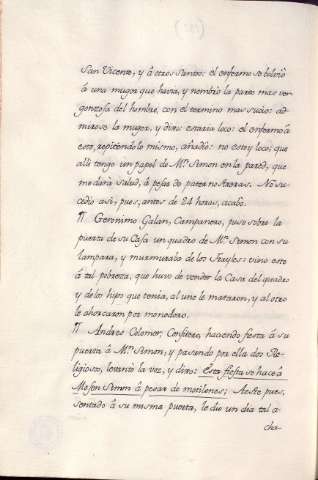 San Vicente, y á otros Santos: el enfermo se bolvió
á una muger que havia, y nombró la parte mas ver-
gonzosa del hombre, con el termino mas sucio: ad-
mirose la muger, y dixo: estaria loco: el enfermo á
esto, repitiendo lo mismo, añadió: no estoy loco; que
alli tengo un papel de Mⁿ. Simon en la pared, que
me dará salud, á pesar de paternostreras. No su-
cedio asi; pues, antes de 24 horas, acabó.
¶ Geronimo Galan, Campanero, puso sobre la
puerta de su Casa un quadro de Mⁿ. Simon con su
lampara, y murmuraba de los Frayles: vino este
á tal pobreza, que huvo de vender la Casa del quadro
y de los hijos que tenia, al uno le mataron, y al otro
le ahorcaron por monedero.
¶ Andres Colomer, Confitero, haciendo fiesta á su
puerta á Mⁿ. Simon; y pasando por ella dos Re-
ligiosos, levantó la voz, y dixo: Esta fiesta se hace á
Mosen Simon á pesar de motilones; A este pues,
sentado á su misma puerta, le dio un dia tal a-
cha-